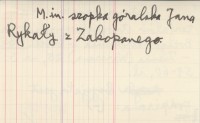 M.in. szopka góralska Jana
Rykały z Zakopanego.